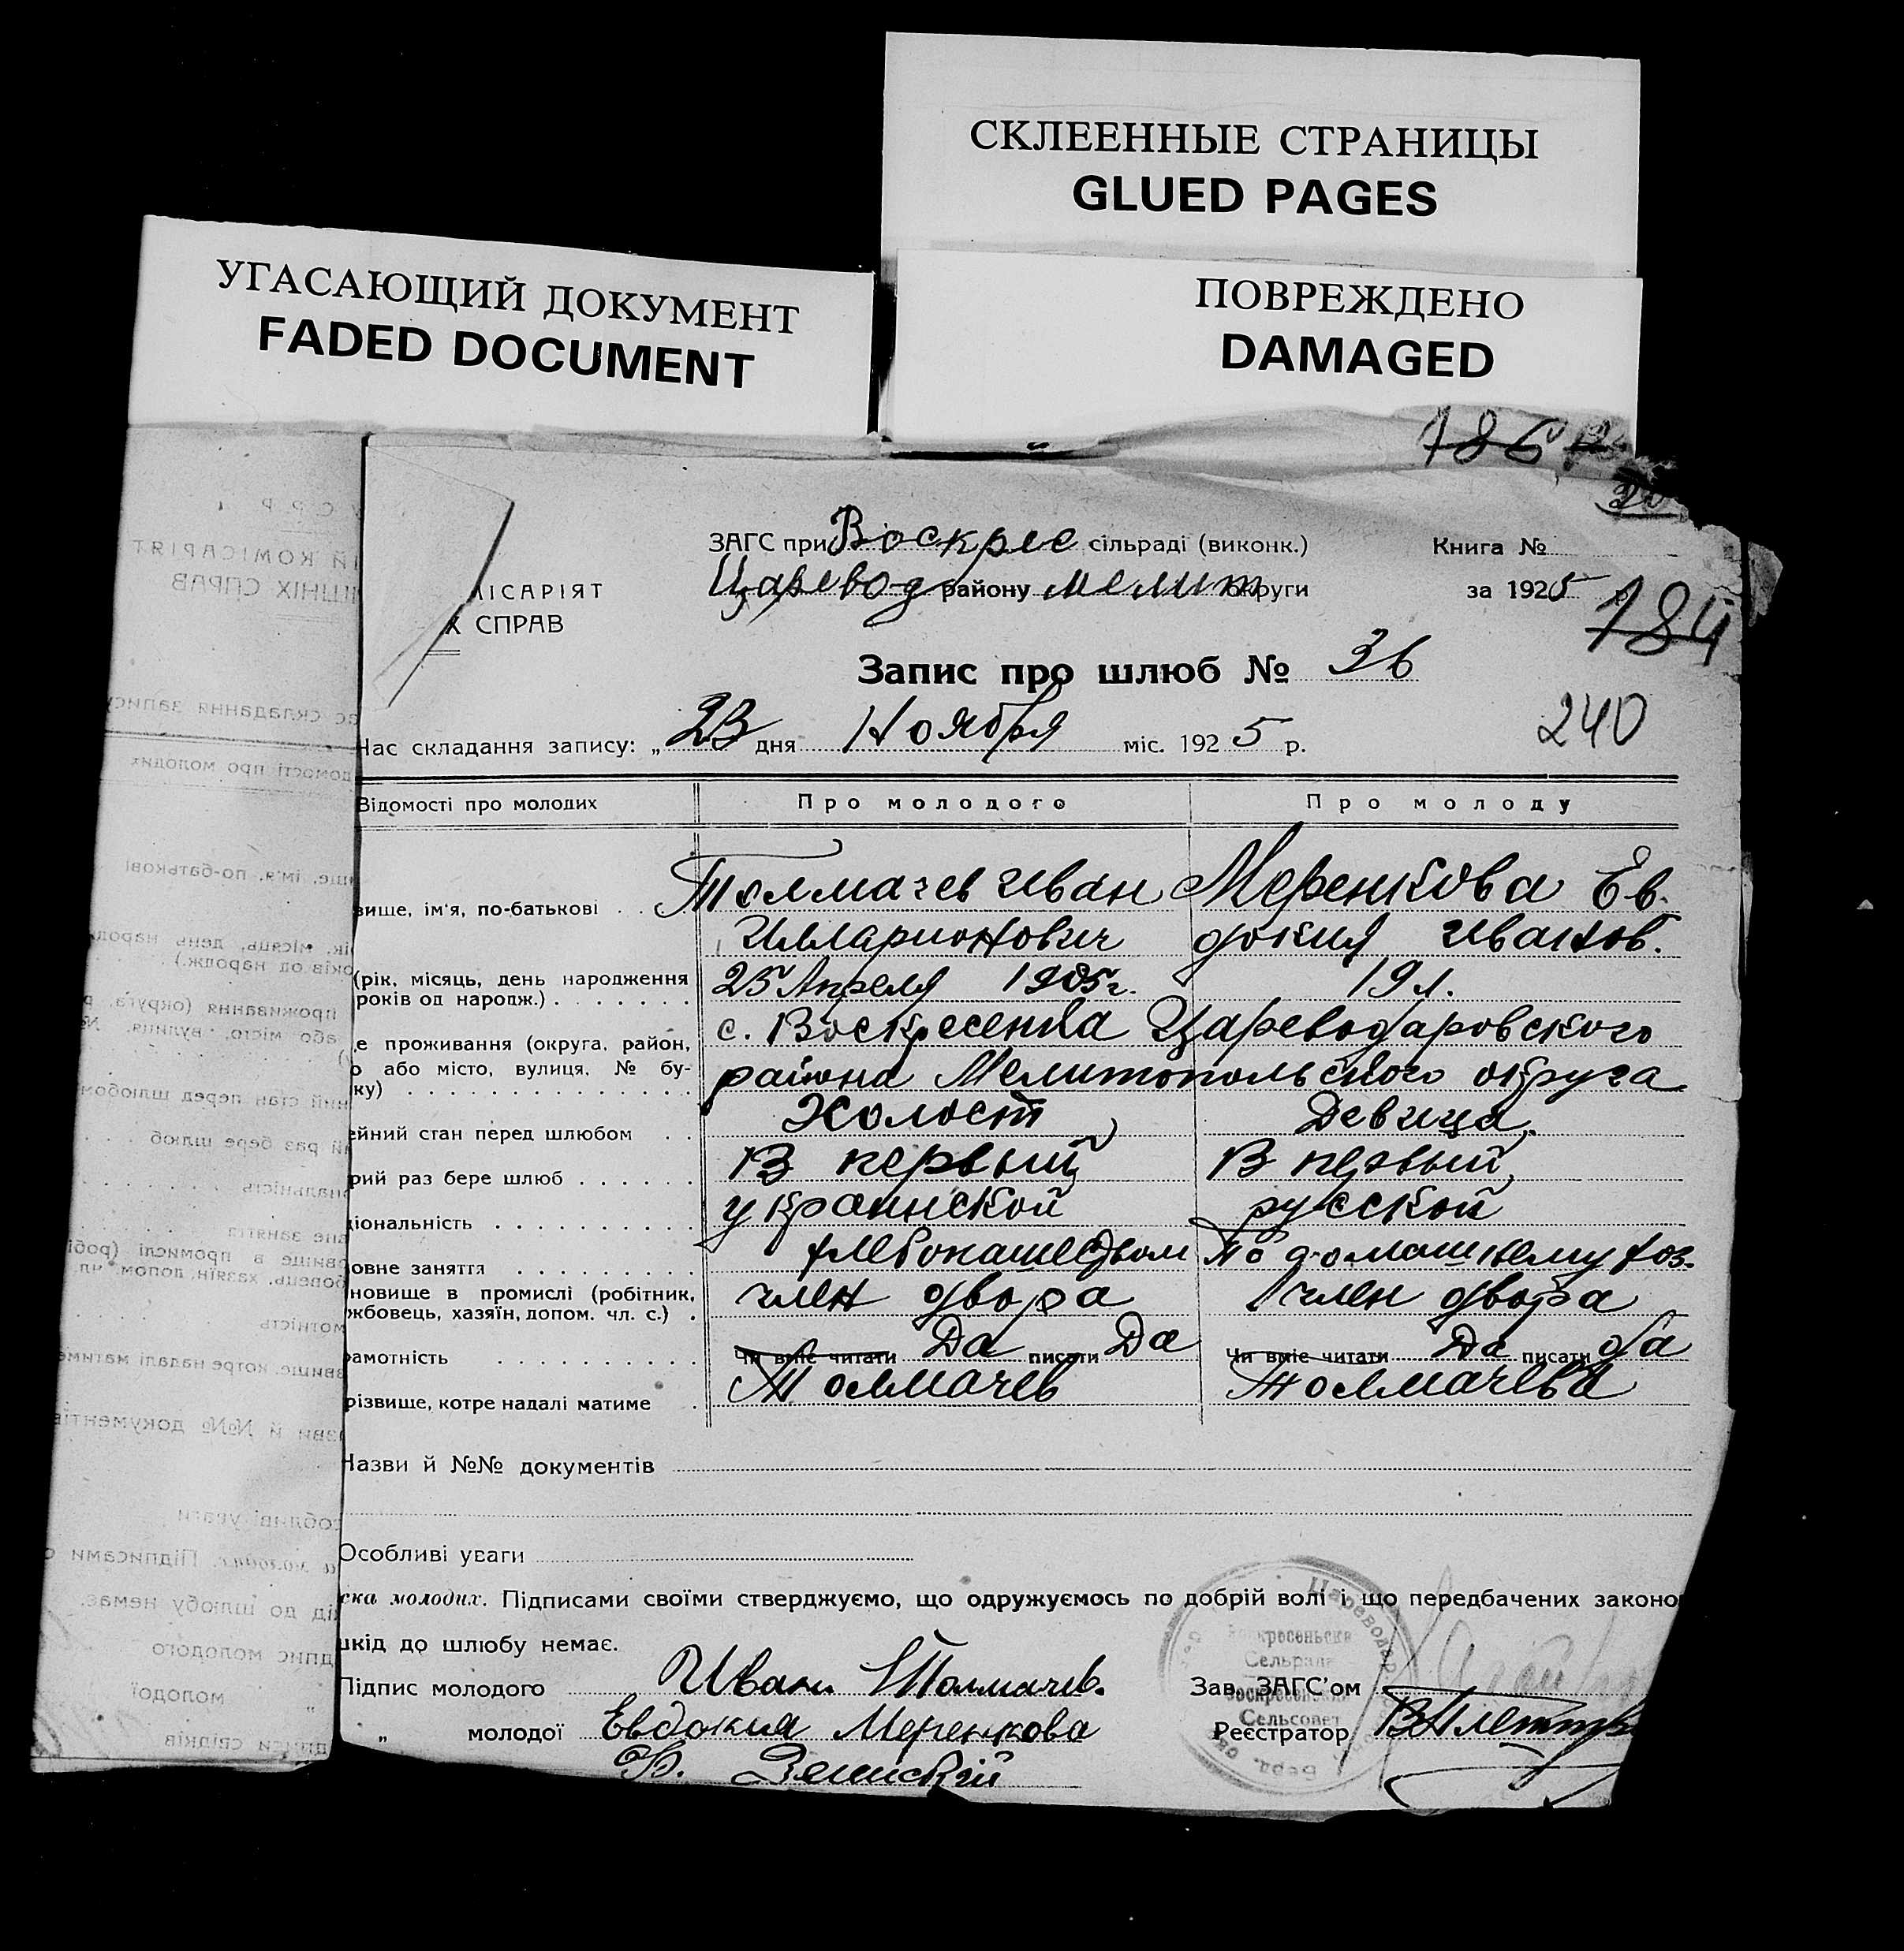 СКЛЕЕННЫЕ СТРАНИЦЫ
GLUED PAGES
УГАСАЮЩИЙ ДОКУМЕНТ
FADED DOCUMENT
ПОВРЕЖДЕНО
DAMAGED
786
ЗАГС при Воскрес сільраді (виконк.) Книга №
Царевод району Мелит округи за 1925 р.
ІСАРІЯТ
Х СПРАВ
784
Запис про шлюб № 36
240
Час складання запису: „ 23 дня Ноября міс. 1925 р.
Відомості про молодих Про молодого Про молоду
вище, ім'я, по-батькові Толмачев Иван Меренкова Ев-
Илларионович докия Иванов.
(рік, місяць, день народження
років од народж.) 25 Апреля 1905 г. 19 л.
с. Воскресенка Цареводаровского
е проживання (округа, район,
о або місто, вулиця, № бу-
ку) района Мелитопольского округа
ейний стан перед шлюбом Холост Девица
рий раз бере шлюб В первый В первый
ціональність украинской русской
овне заняття хлебопашедвом По домашнему хоз.
новище в промислі (робітник,
жбовець, хазяїн, допом. чл. с.) член двора член двора
рамотність Чи вміє читати Да писати Да Чи вміє читати Да писати да
різвище, котре надалі матиме Толмачев Толмачева
Назви й №№ документів
Особливі уваги
ска молодих. Підписами своїми стверджуємо, що одружуємось по добрій волі і що передбачених законо
шкід до шлюбу немає.
Підпис молодого Иван Толмачев. Зав. ЗАГС'ом
„ молодої Евдокия Меренкова Реєстратор
Сельрада
Сельсовет